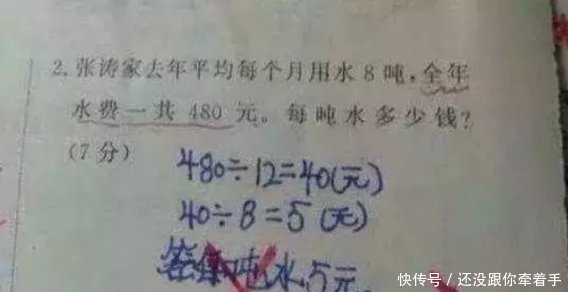 2. 张涛家去年平均每个月用水 8 吨，全年
水费一共 480 元。每吨水多少钱？
(7 分)
480÷12=40(元)
40÷8=5(元)
答:每吨水5元。
快传号 / 还没跟你牵着手